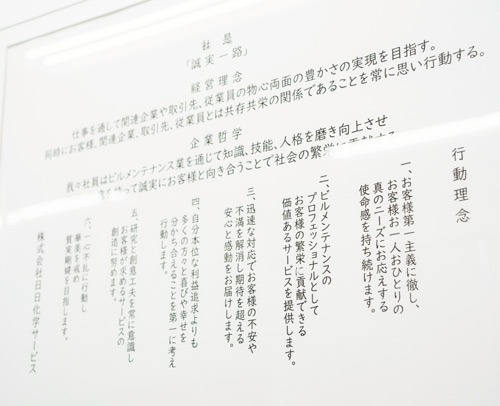 社 是
「誠実一路」
経営理念
仕事を通して関連企業や取引先、従業員の物心両面の豊かさの実現を目指す。
同時にお客様、関連企業、取引先、従業員とは共存共栄の関係であることを常に思い行動する。
企業哲学
我々社員はビルメンテナンス業を通じて知識、技能、人格を磨き向上させ
誠実にお客様と向き合うことで社会の繁栄に貢献する
行動理念
一、お客様第一主義に徹し、
お客様お一人おひとりの
真のニーズにお応えする
使命感を持ち続けます。
二、ビルメンテナンスの
プロフェッショナルとして
お客様の繁栄に貢献できる
価値あるサービスを提供します。
三、迅速な対応でお客様の不安や
不満を解消し期待を超える
安心と感動をお届けします。
四、自分本位な利益追求よりも
多くの方々と喜びや幸せを
分かち合えることを第一に考え
行動します。
五、研究と創意工夫を常に意識し
お客様が求めるサービスの
創造に努めます。
六、一心不乱に行動し
華美を戒め
質実剛健を目指します。
株式会社日日化学サービス